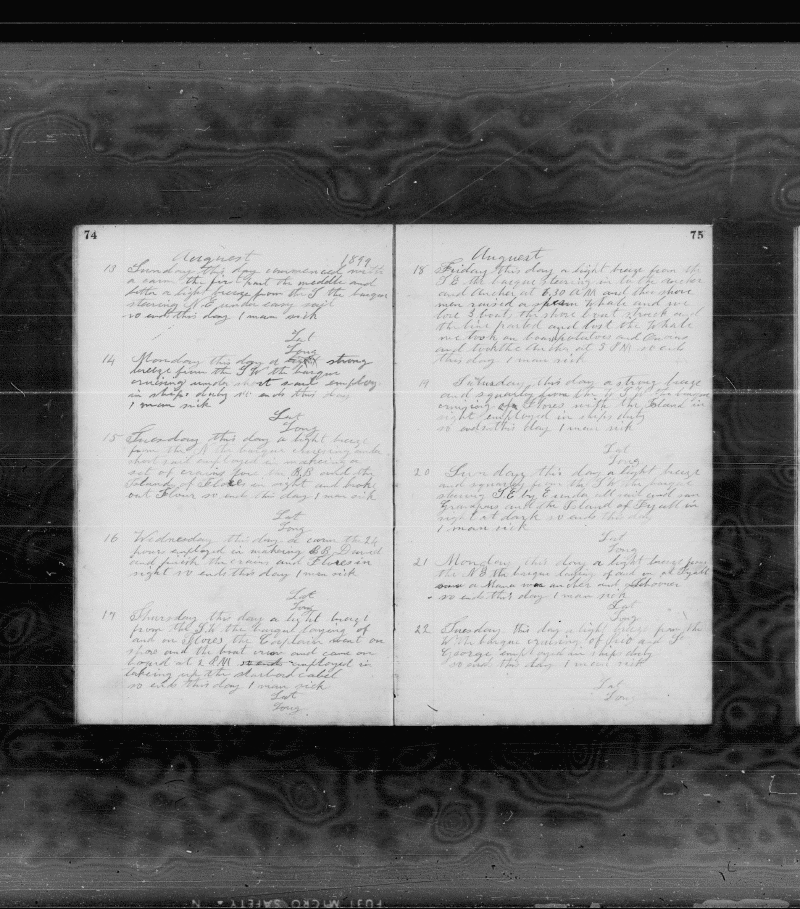 74
Auguest 1899
13 Sunday this day commenced with
a carm the first part the middle and
latter a light breeze from the S the barque
stearing S E under easy sail
so ends this day 1 man sick
Lat
Long
14 Monday this day a strong
breeze from the S W the barque
cruising under short sail employ
in ships duty so ends this day
1 man sick
Lat
Long
15 Tuesday this day a light breeze
from the N the barque cruising under
short sail employed in makeing a
set of crains for the B B and the
Islands of Flores in sight and broke
out Flour so ends this day 1 man sick
Lat
Long
16 Wednesday this day a carm the 24
hour employed in makeing B B David
and finish the crains and Flores in
sight so ends this day 1 man sick
Lat
Long
17 Thursday this day a light breeze
from the S W the barque longing of
and on Flores the Captain went on
shore and the boat crew and came on
board at 2 P M employed in
takeing up the starbord cabel
so ends this day 1 man sick
Lat
Long
75
Auguest
18 Friday this day a light breeze from the
S E the barque stearing in to the ancher
and Ancher at 6,30 A M and the shore
men raised a Sperm Whale and we
lore 3 boats the shore boat struck and
the line parted and lost the Whale
we took on board potatoes and Onions
and took the Ancher at 3 P M so ends
this day 1 man sick
19 Saturday this day a strong breeze
and squarly from the W S W the barque
cruging of Flores with the Island in
sight employed in ships duty
so ends this day 1 man sick
Lat
Long
20 Sunday this day a light breeze
and squarly from the S W the barque
stearing S E by E under all sail and saw
Grandpas and the Island of Fyall in
sight at dark so ends this day
1 man sick
Lat
Long
21 Monday this day a light breeze from
the N E the barque laying of and on at Fyall
a Mana was ancher and Schooner
so ends this day 1 man sick
Lat
Long
22 Tuesday this day a light breeze from the
W the barque cruising of Pico and St
George employed in ship duty
so ends this day 1 man sick
Lat
Lon
FUJI MICRO SAFETY